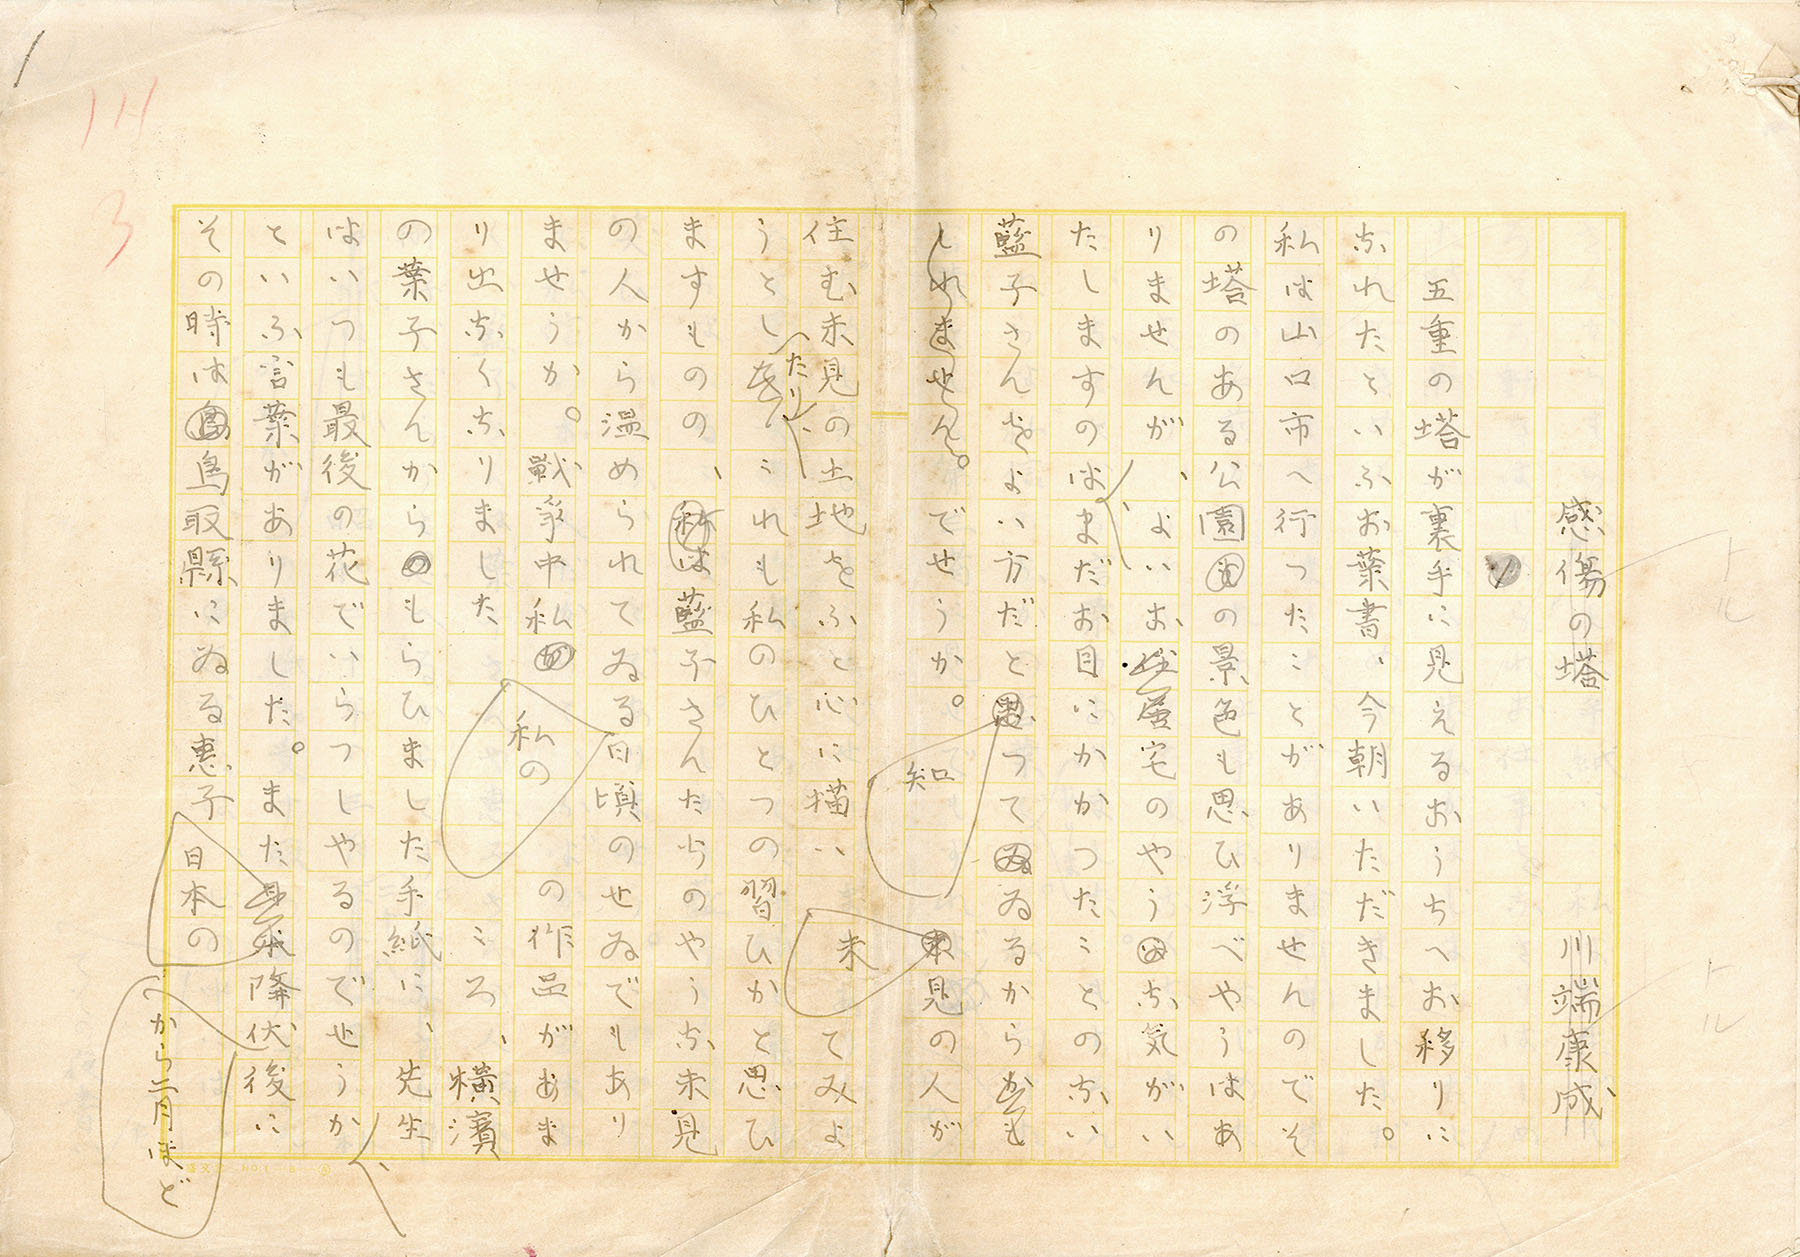 感傷の塔
川端康成
五重の塔が裏手に見えるおうちへお移りに
なれたといふお葉書、今朝いただきました。
私は山口市へ行つたことがありませんのでそ
の塔のある公園の景色も思ひ浮べやうはあ
りませんが、よいお住居宅のやうな気がい
たしますのは、まだお目にかかつたことのない
藍子さんをよい方だと思つてゐるからかも
しれません。でせうか。知
未見の人が
住む未見の土地をふと心に描いてみよ
未
うとしたり、
これも私のひとつの習ひかと思ひ
ますものの、私は藍子さんたちのやうな未見
の人から温められてゐる日頃のせゐでもあり
ませうか。戦争中私の作品があま
私の
り出なくなりました
ころ、横濱
の葉子さんからもらひました手紙に、先生
はいつも最後の花でいらつしやるのでせうか、
といふ言葉がありました。また降伏後に
その時は鳥取縣にゐる恵子
日本の
から二月ほど
トル
トル
3